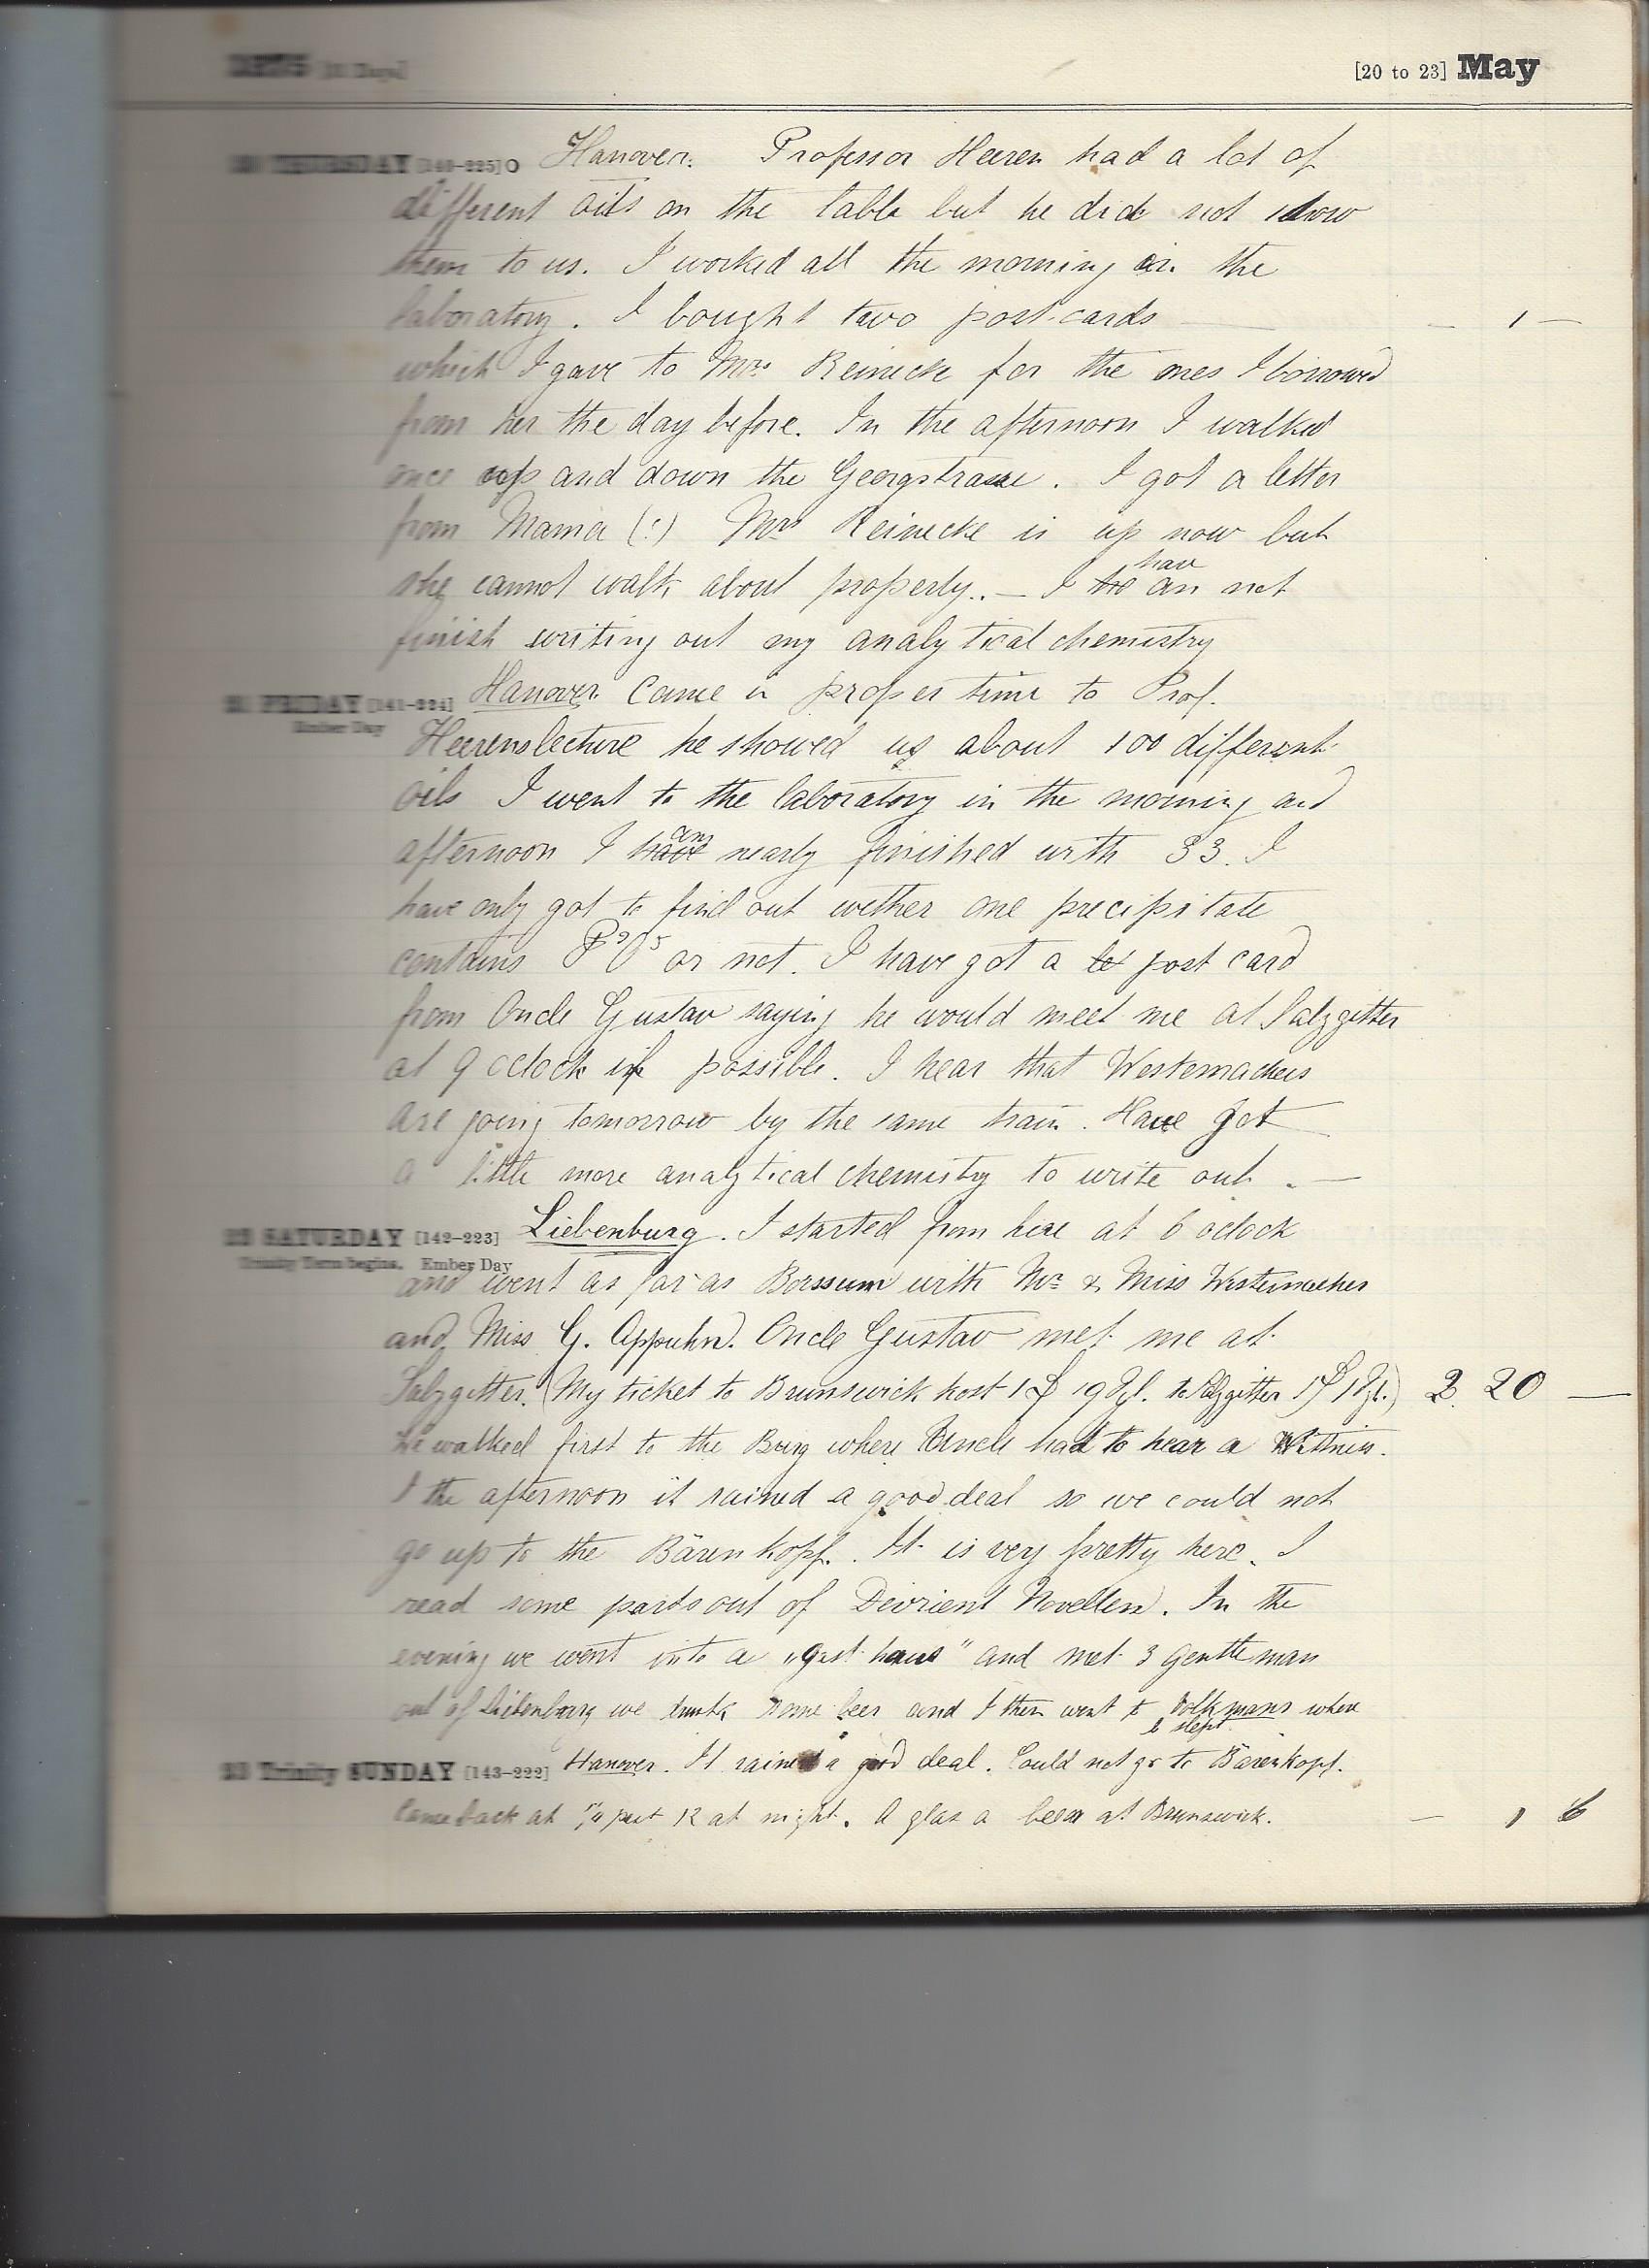 1875 [31 Days] [20 to 23] May
20 THURSDAY [140-225] O Hanover. Professor Heeren had a lot of
different oils on the table but he did not show
them to us. I worked all the morning in the
laboratory. I bought two post-cards — — 1 —
which I gave to Mrs Reinecke for the ones I borrowed
from her the day before. In the afternoon I walked
once up and down the Georgstrasse. I got a letter
from Mama (!) Mrs Reinecke is up now but
she cannot walk about properly. — I have not
finish writing out my analytical chemistry
21 FRIDAY [141-224] Hanover. Came in proper time to Prof.
Ember Day
Heerens lecture he showed us about 100 different
oils I went to the laboratory in the morning and
afternoon I have am nearly finished with 33. I
have only got to find out wether one precipitate
contains P²O⁵ or not. I have got a let post card
from Oncle Gustav saying he would meet me at Salzgitter
at 9 oclock if possible. I hear that Westernachers
are going tomorrow by the same train. Have got
a little more analytical chemistry to write out. —
22 SATURDAY [142-223] Liebenburg. I started from here at 6 oclock
Trinity Term begins. Ember Day
and went as far as Borssum with Mrs & Miss Westernacher
and Miss G. Appuhn. Oncle Gustav met me at
Salzgitter. (My ticket to Brunswick kost 1 19 to Salzgitter 1 1) 2. 20 —
We walked first to the Burg where Uncle had to hear a Wittniss.
I the afternoon it rained a good deal so we could not
go up to the Bärenkopf. It is very pretty here. I
read some parts out of Devrient Novellen. In the
evening we went into a „gast-haus" and met 3 gentleman
out of Liebenburg we drunk some beer and I then went to Volkmans where
I slept
23 Trinity SUNDAY [143-222] Hanover. It rained a good deal. Could not go to Bärenkopf.
Came back at ¼ past 12 at night. A glas a beer at Brunswick. — 1 6